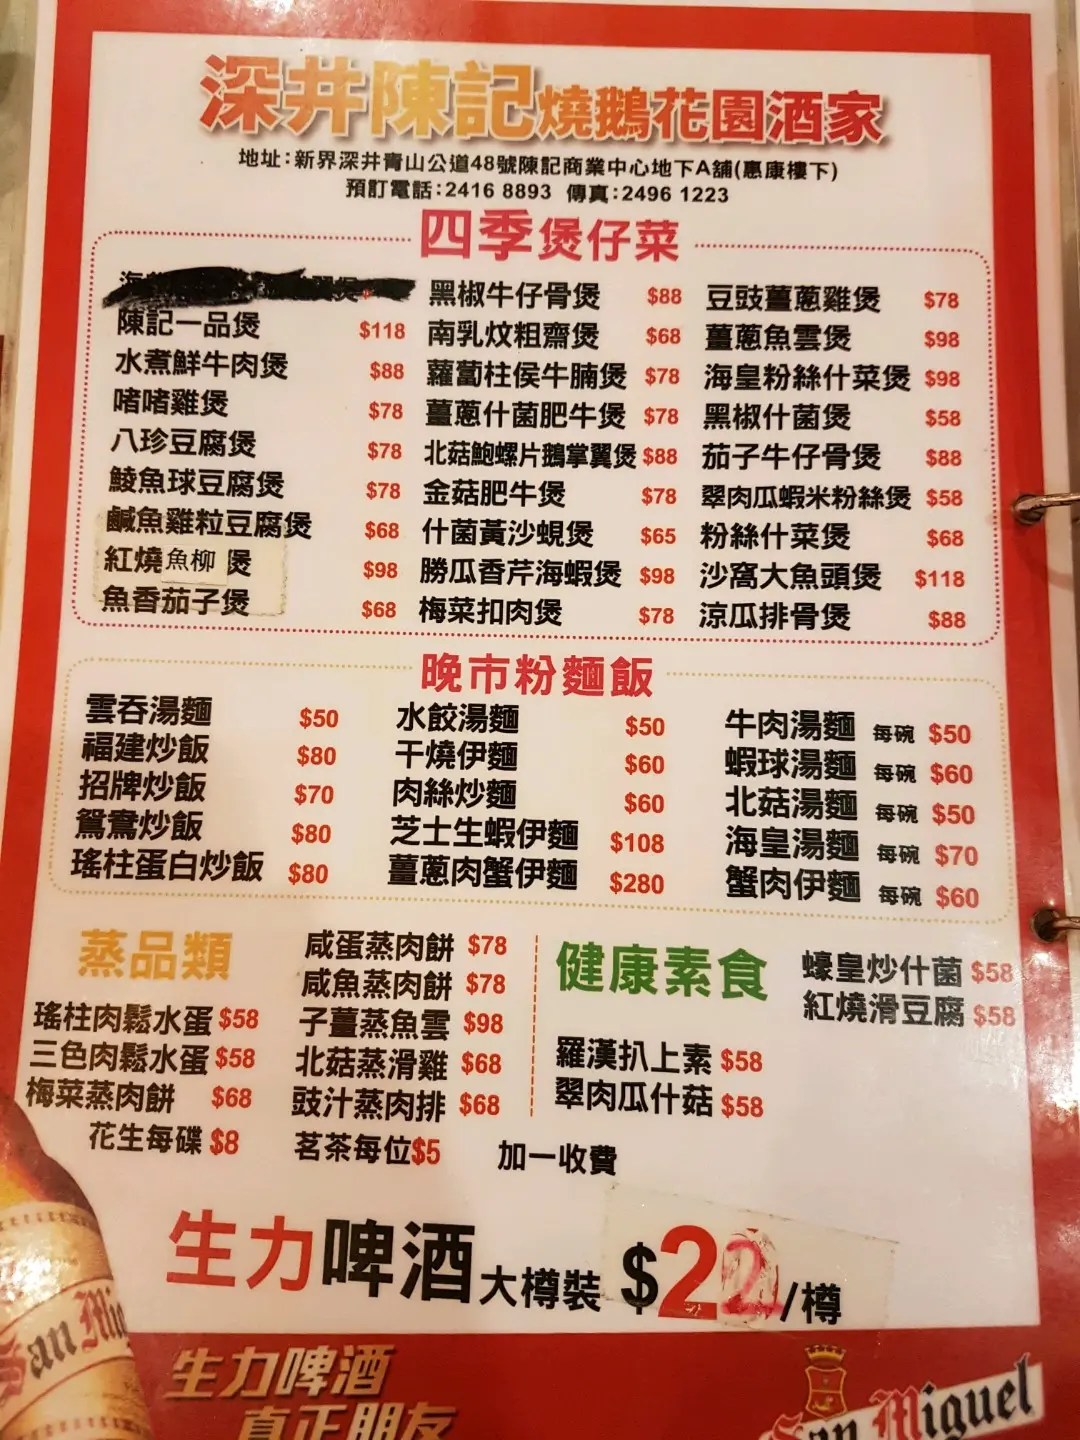 深井陳記燒鵝花園酒家
地址：新界深井青山公道48號陳記商業中心地下A舖(惠康樓下)
預訂電話：2416 8893 傳真：2496 1223
四季煲仔菜
陳記一品煲 $118
水煮鮮牛肉煲 $88
啫啫雞煲 $78
八珍豆腐煲 $78
鯪魚球豆腐煲 $78
鹹魚雞粒豆腐煲 $68
紅燒魚柳煲 $98
魚香茄子煲 $68
黑椒牛仔骨煲 $88
南乳炆粗齋煲 $68
蘿蔔柱侯牛腩煲 $78
薑蔥什菌肥牛煲 $78
北菇鮑螺片鵝掌翼煲 $88
金菇肥牛煲 $78
什菌黃沙蜆煲 $65
勝瓜香芹海蝦煲 $98
梅菜扣肉煲 $78
豆豉薑蔥雞煲 $78
薑蔥魚雲煲 $98
海皇粉絲什菜煲 $98
黑椒什菌煲 $58
茄子牛仔骨煲 $88
翠肉瓜蝦米粉絲煲 $58
粉絲什菜煲 $68
沙窩大魚頭煲 $118
涼瓜排骨煲 $88
晚市粉麵飯
雲吞湯麵 $50
福建炒飯 $80
招牌炒飯 $70
鴛鴦炒飯 $80
瑤柱蛋白炒飯 $80
水餃湯麵 $50
干燒伊麵 $60
肉絲炒麵 $60
芝士生蝦伊麵 $108
薑蔥肉蟹伊麵 $280
牛肉湯麵 每碗 $50
蝦球湯麵 每碗 $60
北菇湯麵 每碗 $50
海皇湯麵 每碗 $70
蟹肉伊麵 每碗 $60
蒸品類
瑤柱肉鬆水蛋 $58
三色肉鬆水蛋 $58
梅菜蒸肉餅 $68
咸蛋蒸肉餅 $78
咸魚蒸肉餅 $78
子薑蒸魚雲 $98
北菇蒸滑雞 $68
豉汁蒸肉排 $68
健康素食
蠔皇炒什菌 $58
紅燒滑豆腐 $58
羅漢扒上素 $58
翠肉瓜什菇 $58
花生每碟 $8 茗茶每位$5 加一收費
生力啤酒 大樽裝 $22/樽
San Mig
生力啤酒
真正朋友
San Miguel